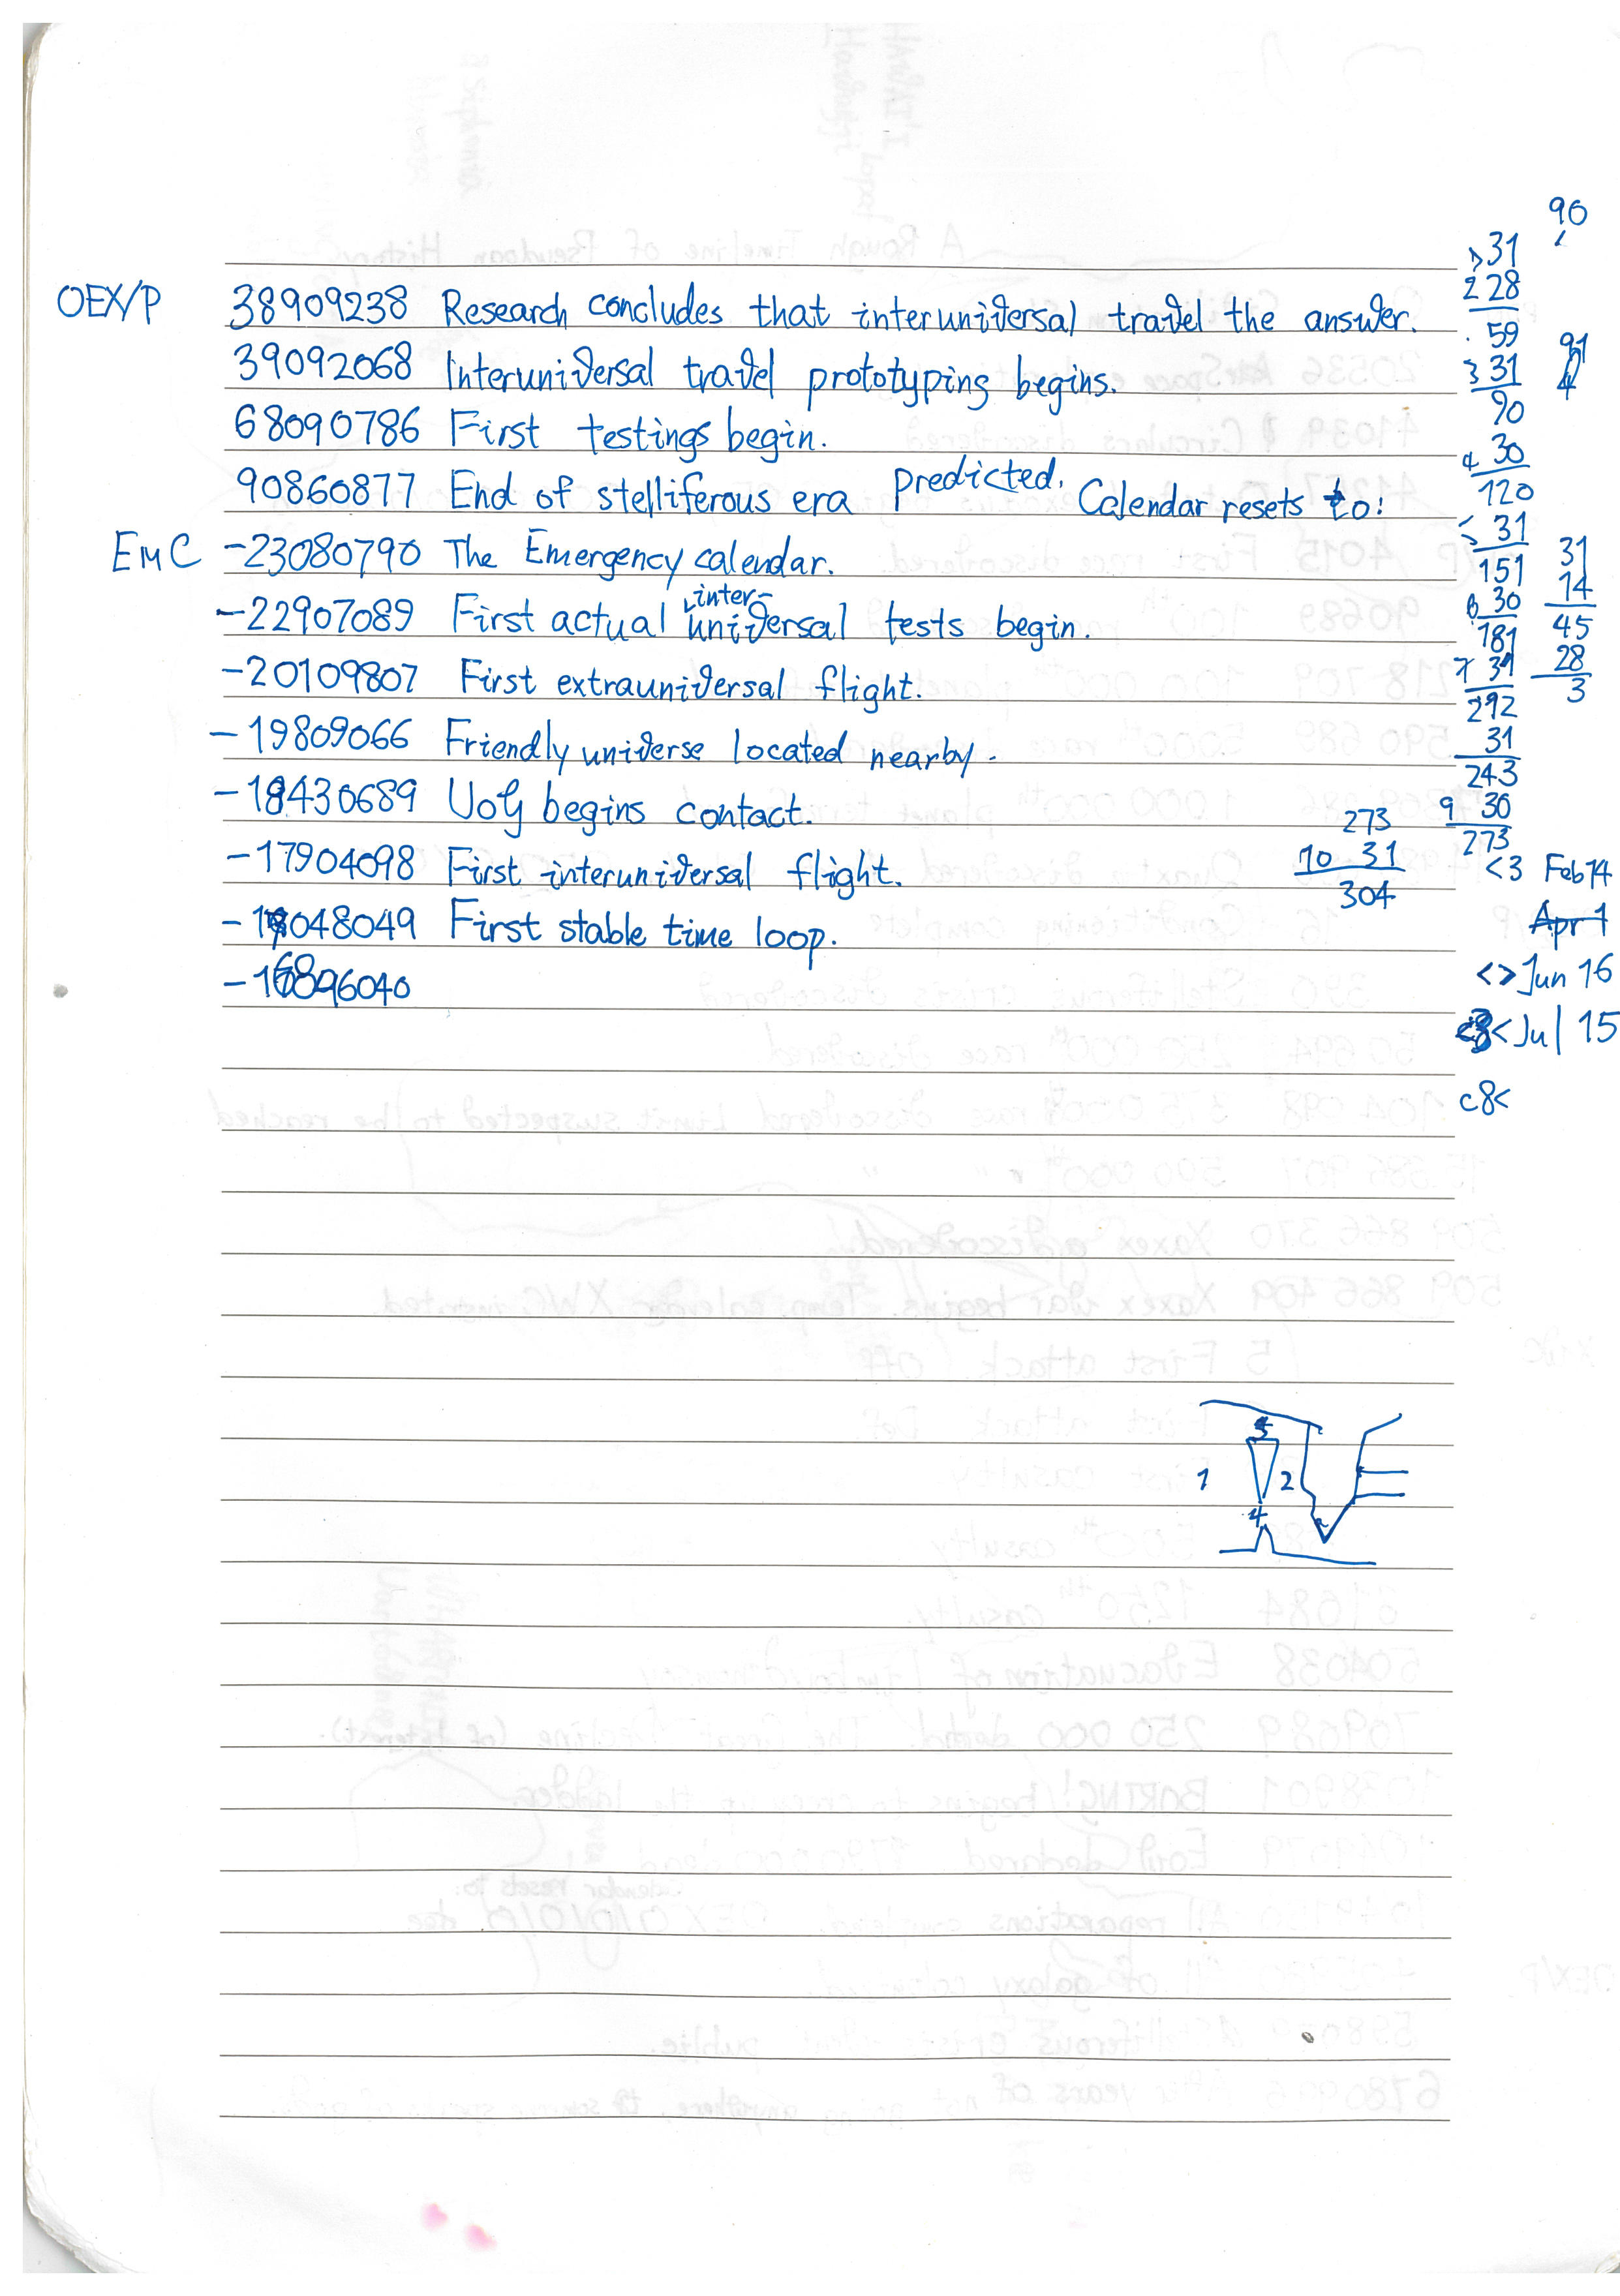 OEX/P 38909238 Research concludes that interuniversal travel the answer.
39092068 Interuniversal travel prototyping begins.
68090786 First testings begin.
90860877 End of stelliferous era predicted. Calendar resets to:
EMC -23080790 The Emergency calendar.
-22907089 First actual inter-universal tests begin.
-20109807 First extrauniversal flight.
-19809066 Friendly universe located nearby.
-18430689 UoG begins contact.
-17904098 First interuniversal flight.
-17048049 First stable time loop.
-16896040
90
31
2 28
59
3 31
90
4 30
120
5 31
151
6 30
181
7 31
212
31
243
9 30
273
91
4
31
14
45
28
3
273
10 31
304
<3 Feb 14
Apr 1
<> Jun 16
< Jul 15
c8<
1 2 4